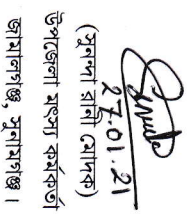 27.01.21
(সুনন্দা রানী মোদক)
উপজেলা মৎস্য কর্মকর্তা
জামালগঞ্জ, সুনামগঞ্জ।